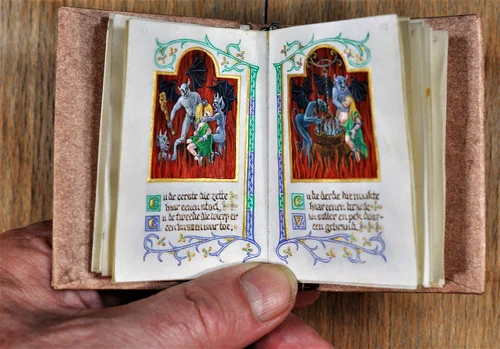 En de eerste die zette
haar eenen stoel,
En de tweede die wierp er
een kussen naar toe,
En de derde die maakte
haar eenen
en pek door-
een gebrand